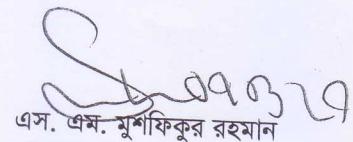 এস. এম. মুশফিকুর রহমান